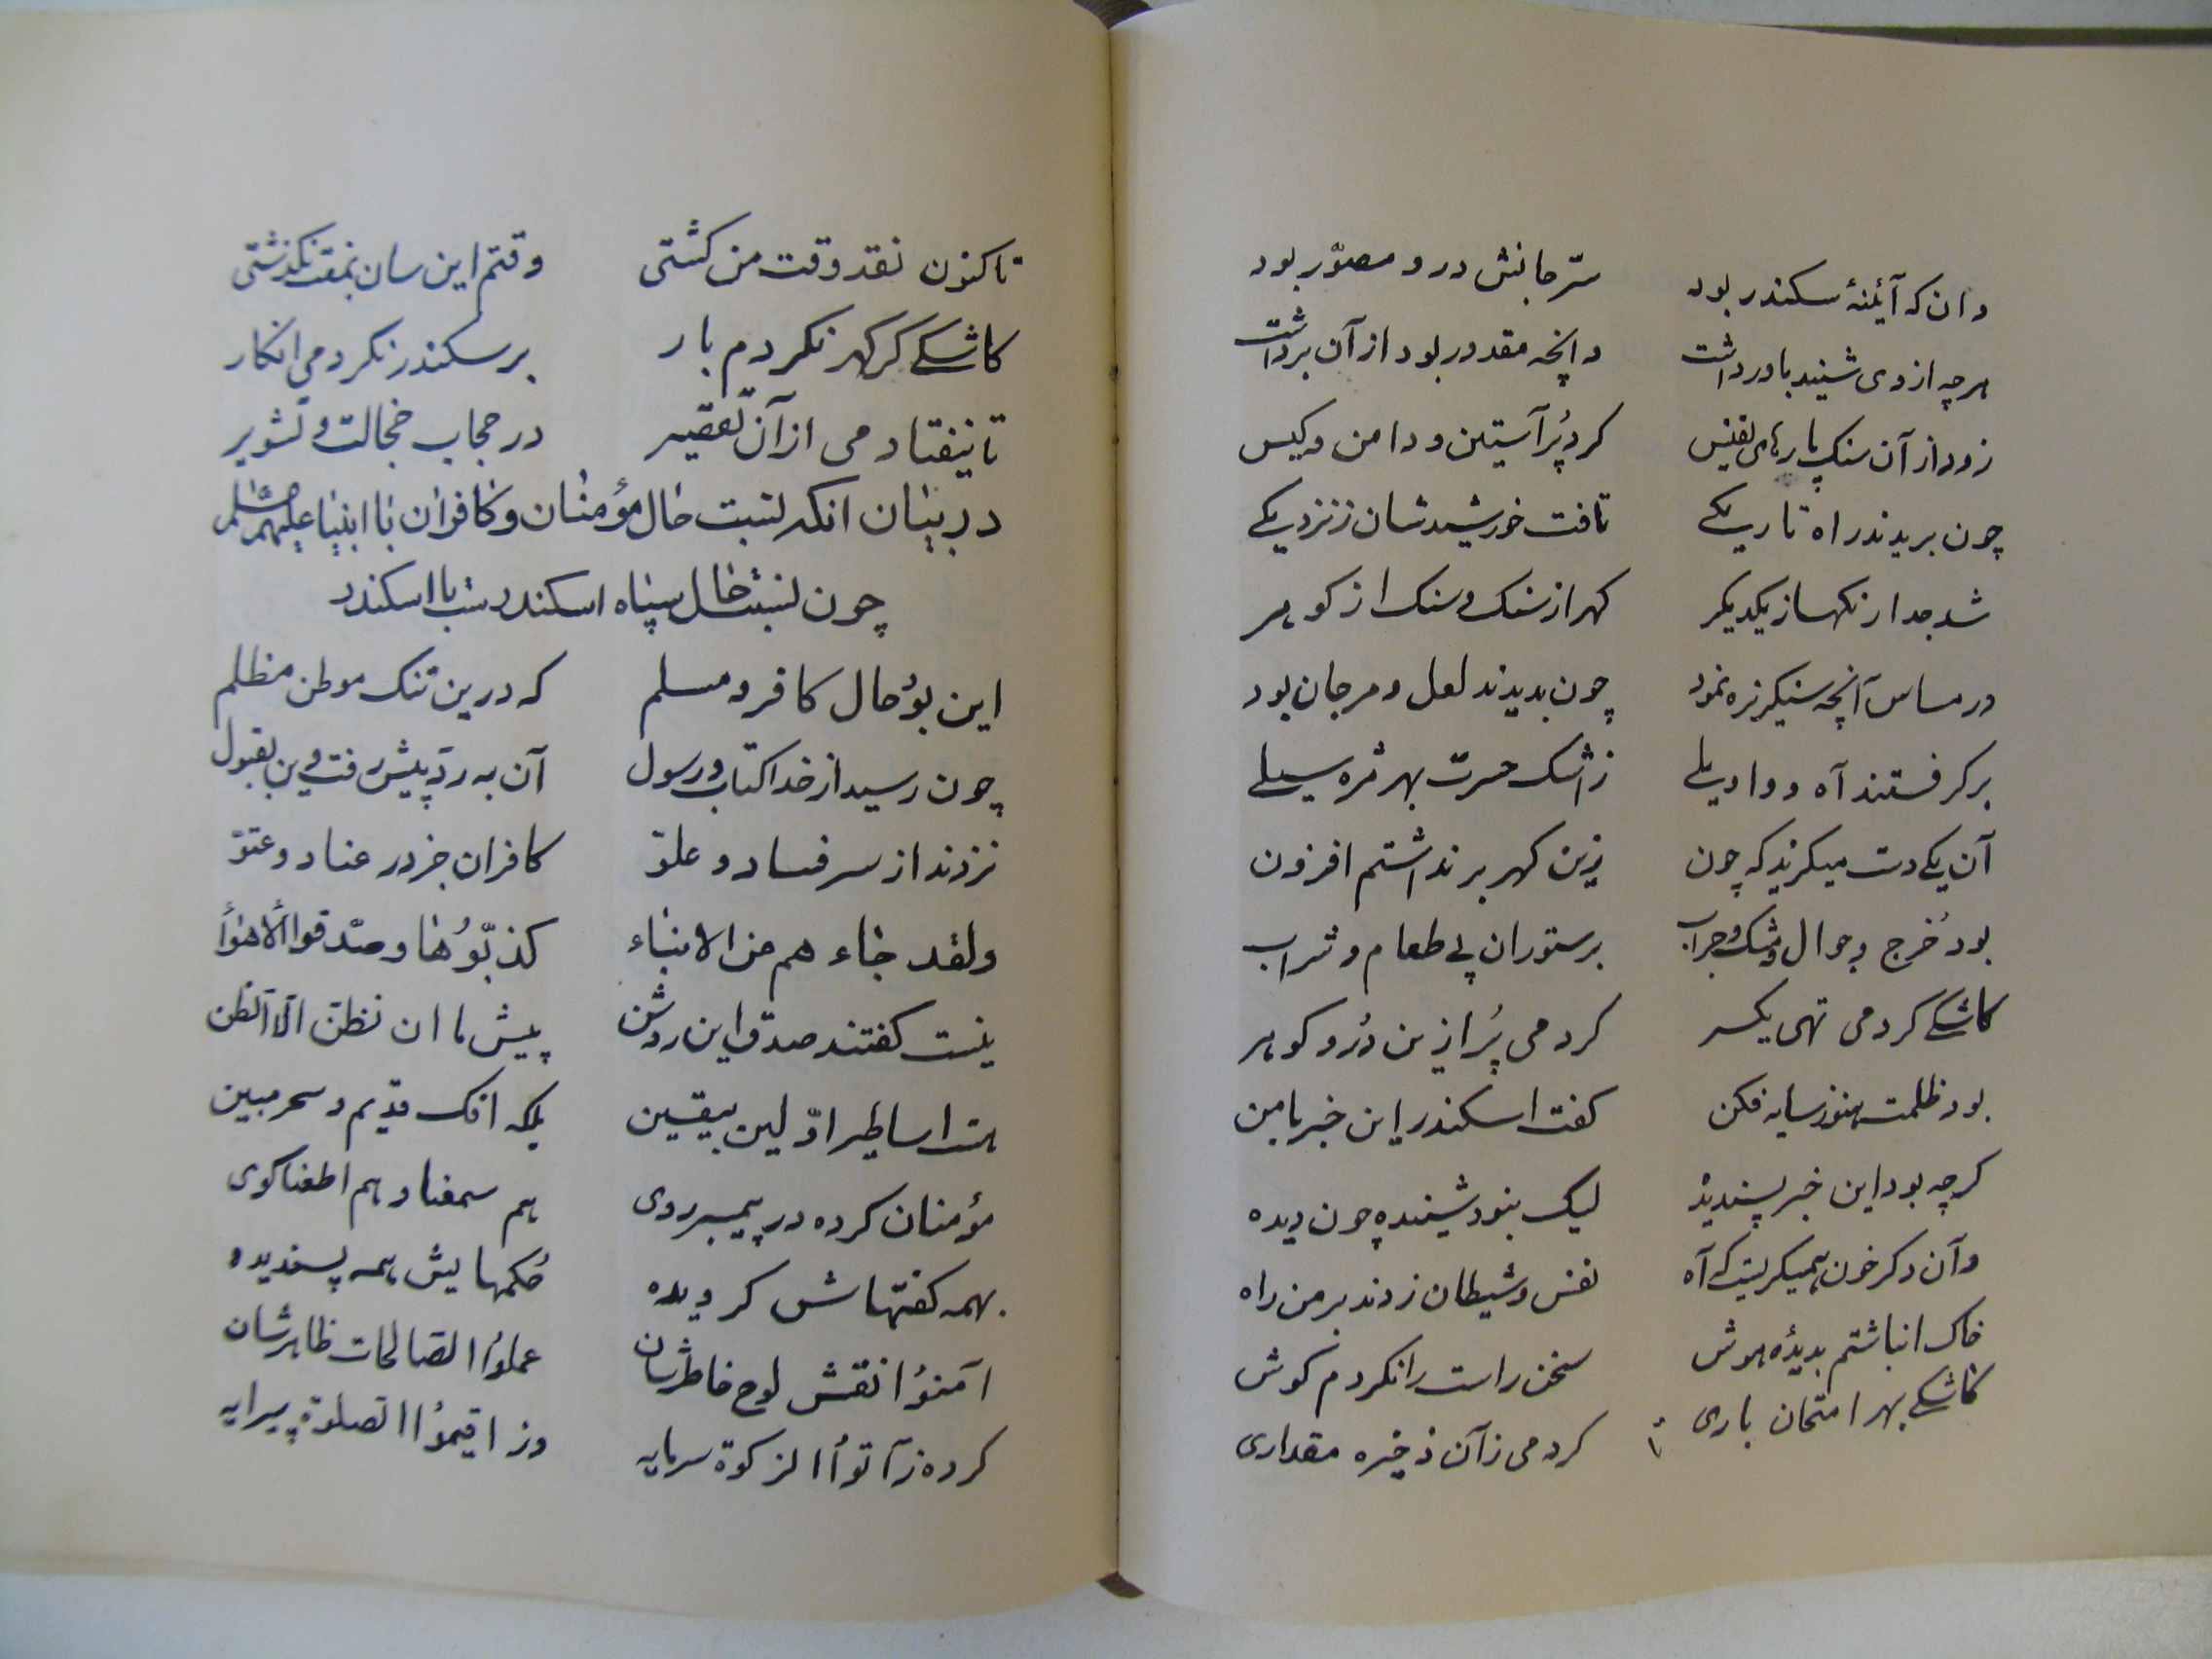 وان که آئینهٔ سکندر بود سرّ جانش درو مصوّر بود
هرچه از وی شنید باور داشت وانچه مقدور بود از آن برداشت
زود از آن سنک پارهای نفیس کرد پُر آستین و دامن و کیس
چون بریدند راه تاریکے تافت خورشیدشان ز نزدیکے
شد جدا رنکها ز یکدیکر کهر از سنک و سنک از کوهر
در مساس آنچه سنکریزه نمود چون بدیدند لعل و مرجان بود
برکرفستند آه و واویلے ز اشک حسرت بهر مژه سیلے
آن یکے دست میکزید که چون زین کهر برنداشتم افزون
بود خُرج و جوال و مشک و جراب برستوران پے طعام و شراب
کاشکے کردمی تهی یکسر کردمی پُر ازین دُر و کوهر
بود ظلمت هنوز سایه فکن کفت اسکندر این خبر با من
کرچه بود این خبر پسندیده لیک نبود شینده چون دیده
وآن دکر خون همیکریست که آه نفس و شیطان زدند بر من راه
خاک انباشتم بدیدهٔ هوش سخن راست را نکردم کوش
کاشکے بهر امتحان باری کردمی زآن ذخیره مقداری
تا کنون نقد وقت من کشتی وقتم این سان بمقت نکذشتی
کاشکے کر کهر نکردم بار بر سکندر نکردمی انکار
تا نیفتادمی از آن تقصیر در حجاب خجالت و تشویر
در بیان انکه نسبت حال مؤمنان و کافران با انبیا علیهم
چون نسبت حال سپاه اسکندرست با اسکندر
این بوُد حال کافر و مسلم که درین تنک موطن مظلم
چون رسید از خدا کتاب و رسول آن به ردّ پیش رفت و این بقبول
نزدند از سر فساد و علوّ کافران جز در عناد و عتوّ
ولقد جاء هم من الانباء کذّبوُها و صدّقوا الأهوأ
نیست کفتند صدق این روشن پیش ما ان نظنّ الّا الظن
هست اساطیر اوّلین بیقین بلکه افک قدیم و سحر مبین
مؤمنان کرده در پیمبر روی هم سمعنا و هم اطعنا کوی
بهمه کفتهاش کرویده حُکمهایش همه پسندیده
آمنوُا نقش لوح خاطرشان عملوُا الصّالحات ظاهرشان
کرده ز آتوُا الزکوة سرمایه وز اقیموُا الصّلوة پیرایه